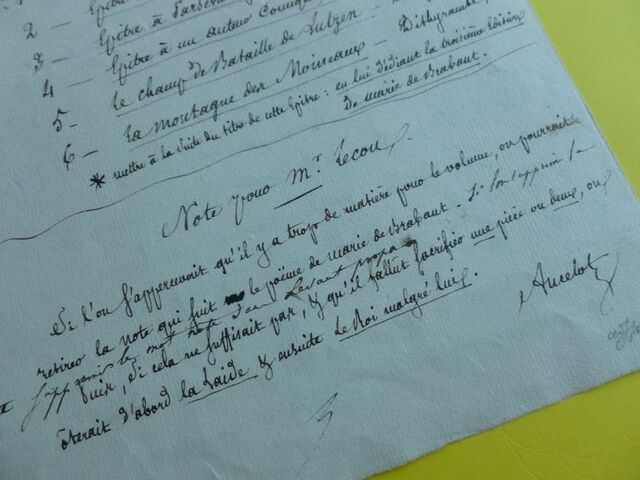 2 - Epitre à
3 - Epitre à un auteur comique
4 - Le champ de Bataille de Lutzen - Dithyrambe
5 - La montagne des Moineaux
6 -
* mettre à la suite du titre de cette Epitre : en lui dédiant la troisième édition
de marie de Brabant.
Note pour Mr. Lecou.
Si l'on s'appercevoit qu'il y a trop de matière pour le volume, on pourrait
retirer la note qui suit le poëme de marie de Brabant. Si l'on supprime la
supprimer le mot note
suite, si cela ne suffisait pas, & qu'il fallût sacrifier une pièce ou deux, on
ôterait d'abord la Laide & ensuite Le Roi malgré lui.
Ancelot